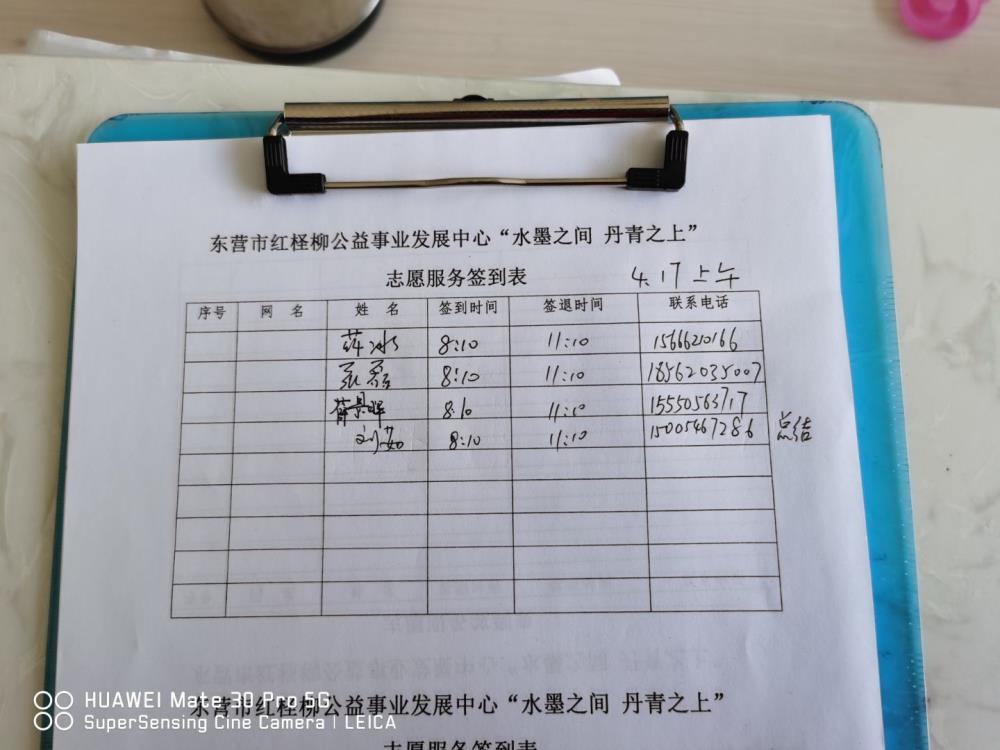 东营市红柽柳公益事业发展中心“水墨之间 丹青之上”
志愿服务签到表 4.17上午
序号 网 名 姓 名 签到时间 签退时间 联系电话
薛冰 8:10 11:10 15666210166
张磊 8:10 11:10 18562035007
8:10 11:10 15550563717
刘茹 8:10 11:10 15005467286 总结
东营市红柽柳公益事业发展中心“水墨之间 丹青之上”
志愿服务签到表
HUAWEI Mate 30 Pro 5G
SuperSensing Cine Camera | LEICA